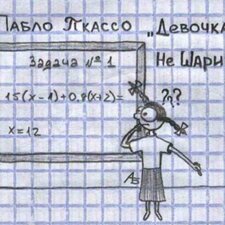 Пабло Пкассо „Девочка
Не Шари
Задача № 1
15(x-1)+0,8(x+2)=
x=12
??